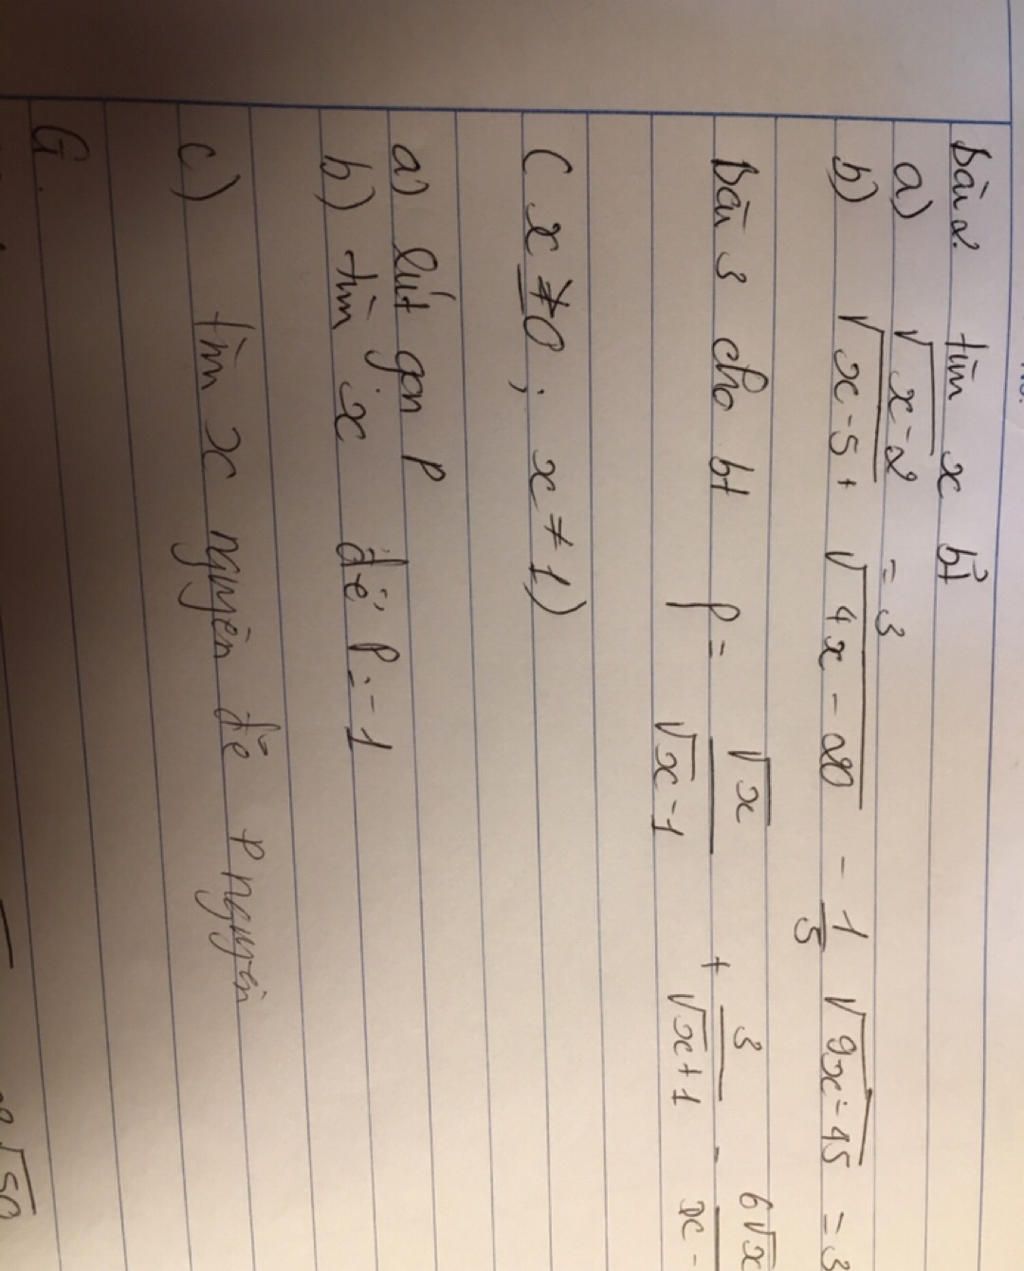 bài 2. tìm x bt
a) √x-2 = 3
b) √x-5 + √4x-20 - 1/5 √9x-45 = 3
bài 3 cho bt P = √x/√x-1 + 3/√x+1 - 6√x/x-
(x ≥ 0; x ≠ 1)
a) rút gọn P
b) tìm x để P = -1
c) tìm x nguyên để P nguyên
G.
√50